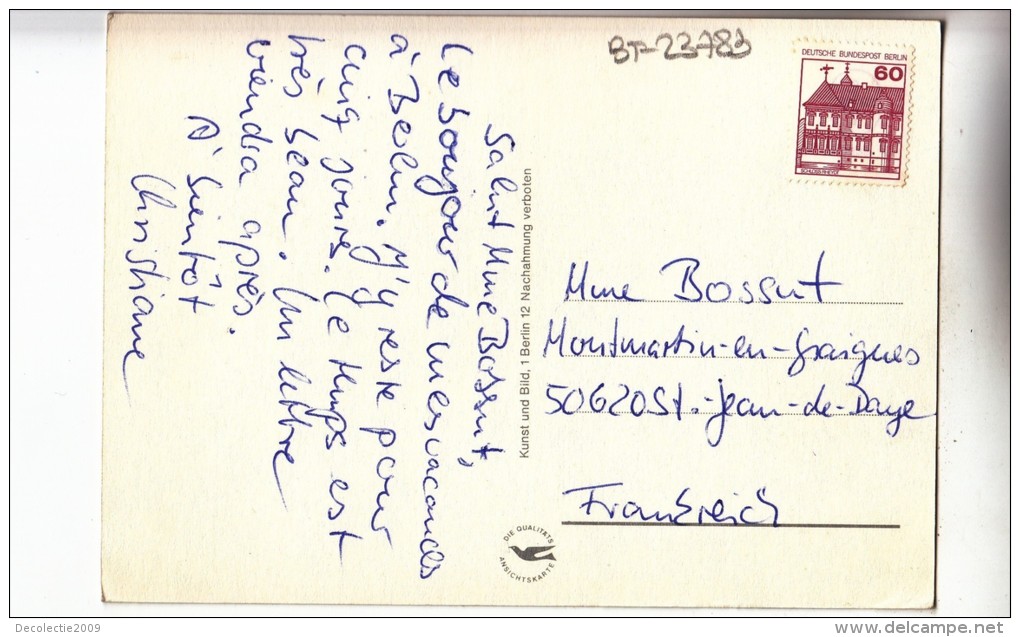 BF-23783
DEUTSCHE BUNDESPOST BERLIN
60
SCHLOSS RHEYDT
Salut Mme Bossut,
Le bonjour de mes vacances
à Berlin. J'y reste pour
cinq jours. Le temps est
très beau. Une lettre
viendra après.
A bientôt
Christiane
Kunst und Bild, 1 Berlin 12 Nachahmung verboten
Mme Bossut
Montmartin-en-Graignes
50620 St.-Jean-de-Daye
Frankreich
DIE QUALITÄTS
ANSICHTSKARTE
Decolectie2009
delcampe.net